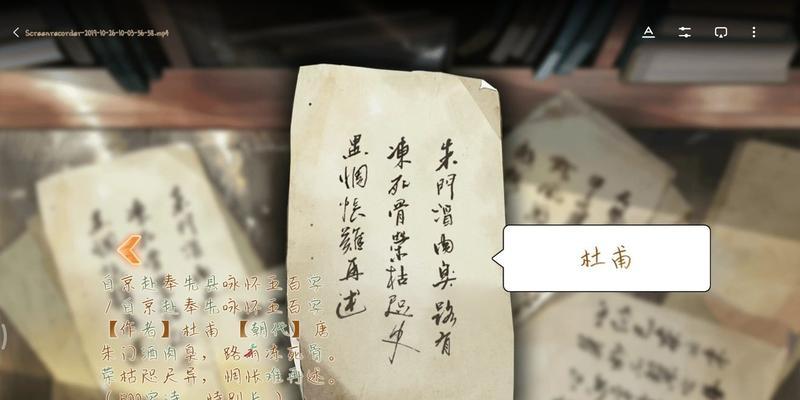 Screenrecorder-2019-10-26-10-03-56-58.mp4
朱門酒肉臭路有
凍死骨榮枯咫尺
異惆悵難再述
杜甫
自京赴奉先县咏怀五百字
/自京赴奉先县咏怀五百字
【作者】杜甫 【朝代】唐
朱门酒肉臭，路有冻死骨。
荣枯咫尺异，惆怅难再述。